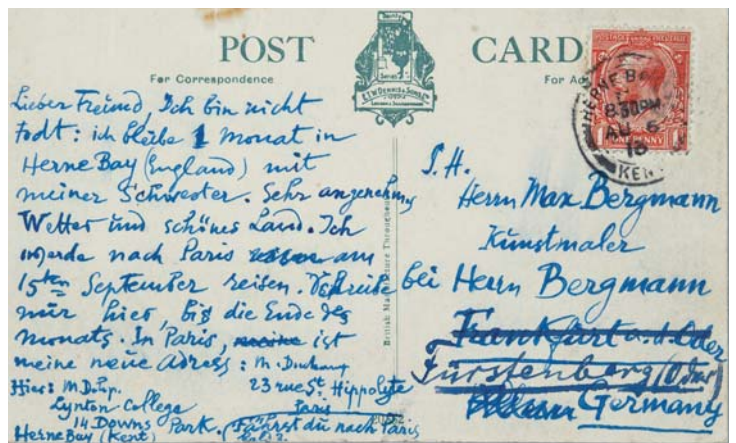 POST CARD
For Correspondence
For Ad
E.T.W. DENNIS & SONS, LTD
LONDON & SCARBOROUGH
British Manufacture Throughout
POSTAGE REVENUE
ONE PENNY
HERNE BAY
8 30 PM
AU 6
KENT
Lieber Freund, Ich bin nicht
todt: ich bleibe 1 Monat in
Herne Bay (England) mit
meiner Schwester. Sehr angenehmes
Wetter und schönes Land. Ich
werde nach Paris am
15ten September reisen. Schreibe
mir hier, bis die Ende des
monats. In Paris, meine ist
meine neue Adress: M. Duchamp
23 rue St. Hippolyte
Paris
Hier: M. Dchp.
Lynton College
14 Downs Park.
Herne Bay (Kent)
(Fährst du nach Paris
S.H.
Herrn Max Bergmann
Kunstmaler
bei Herrn Bergmann
Frankfurt a.d. Oder
Fürstenberg (Oder)
Germany